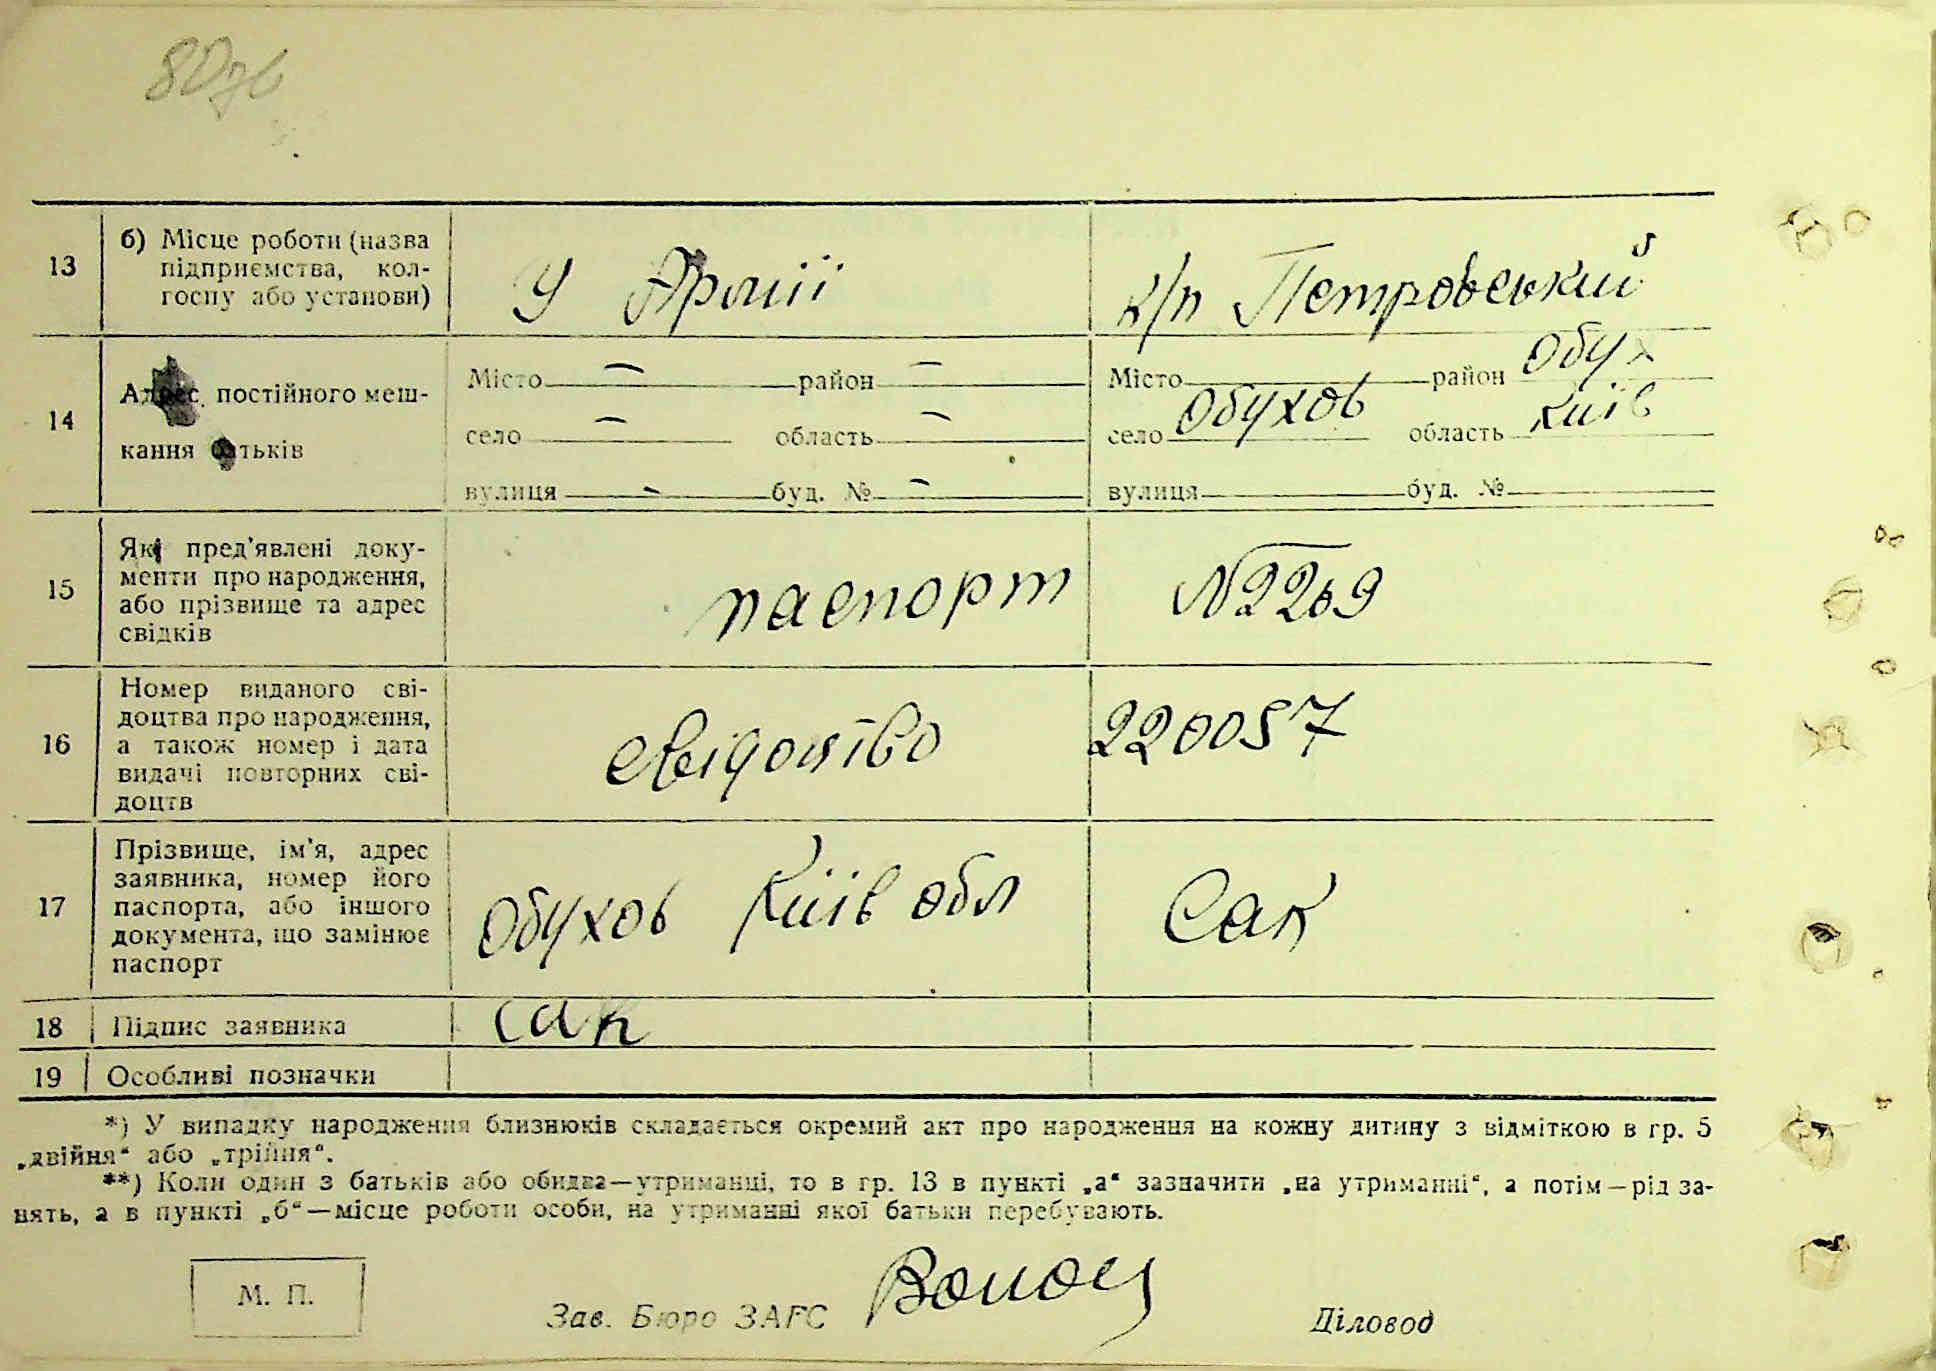 80зв
13 б) Місце роботи (назва підприємства, кол-госпу або установи) У Армії к/п Петровський
14 Адрес постійного меш-кання батьків
Місто — район — Місто район Обух
село — область — село Обухов область Київ
вулиця — буд. № — вулиця буд. №
15 Які пред'явлені доку-менти про народження, або прізвище та адрес свідків паспорт №2269
16 Номер виданого сві-доцтва про народження, а також номер і дата видачі повторних сві-доцтв свідоцтво 220057
17 Прізвище, ім'я, адрес заявника, номер його паспорта, або іншого документа, що замінює паспорт Обухов Київ обл Сак
18 Підпис заявника Сак
19 Особливі позначки
*) У випадку народження близнюків складається окремий акт про народження на кожну дитину з відміткою в гр. 5
„двійня“ або „трійня“.
**) Коли один з батьків або обидва—утриманці, то в гр. 13 в пункті „а“ зазначити „на утриманні“, а потім—рід за-
нять, а в пункті „б“—місце роботи особи, на утриманні якої батьки перебувають.
М. П.
Зав. Бюро ЗАГС
Діловод